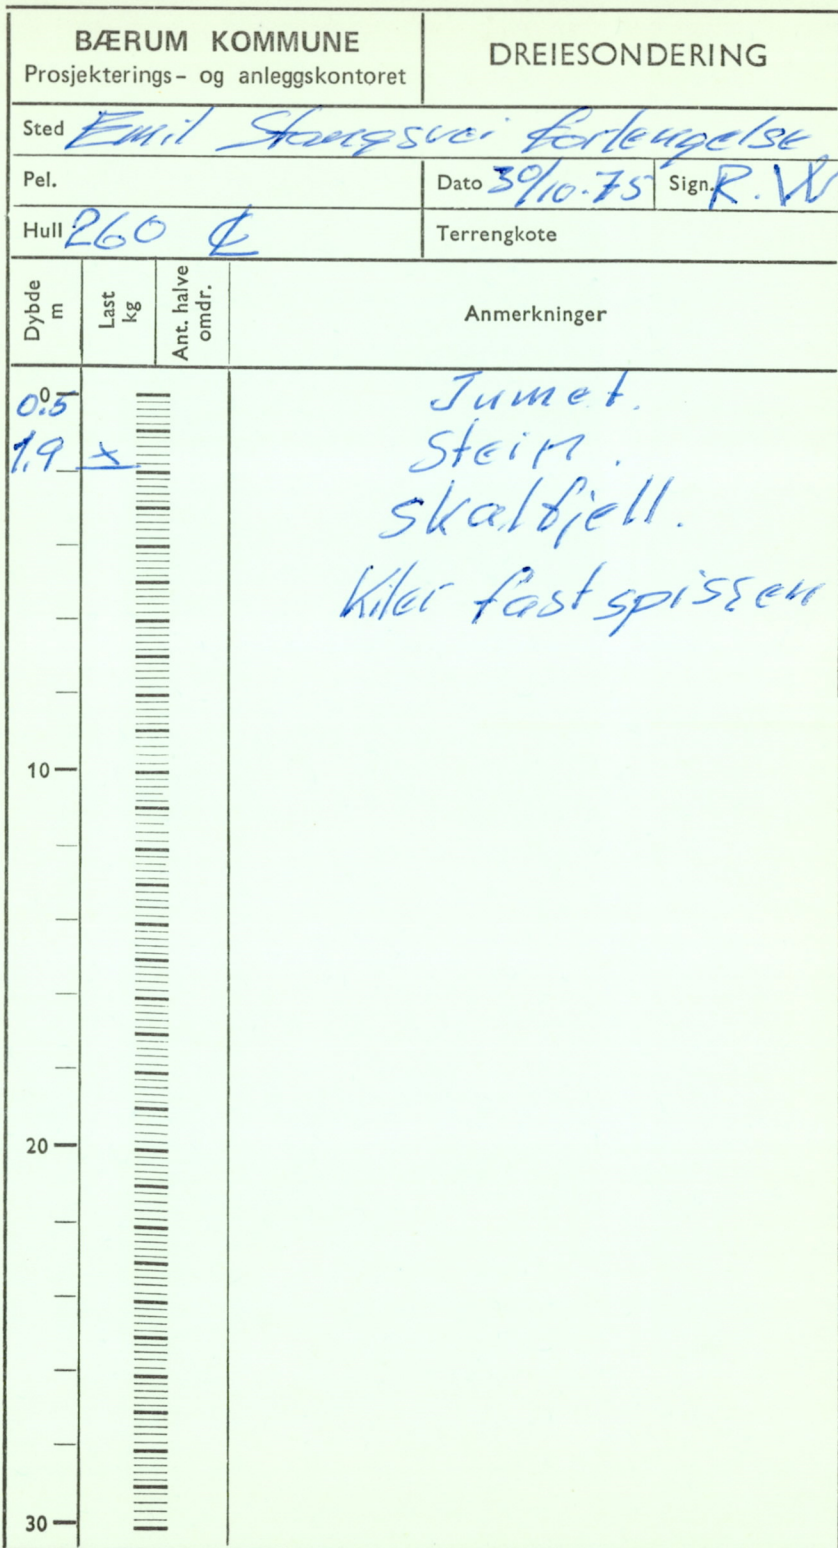 BÆRUM KOMMUNE
Prosjekterings- og anleggskontoret
DREIESONDERING
Sted Emil Stangsvei forlengelse
Pel.
Dato 30/10-75 Sign. R. W
Hull 260 ℄
Terrengkote
Dybde m
Last kg
Ant. halve omdr.
Anmerkninger
0
0.5 Jumet.
1.9 x Stein.
skalfjell.
Kiler fast spissen
10
20
30